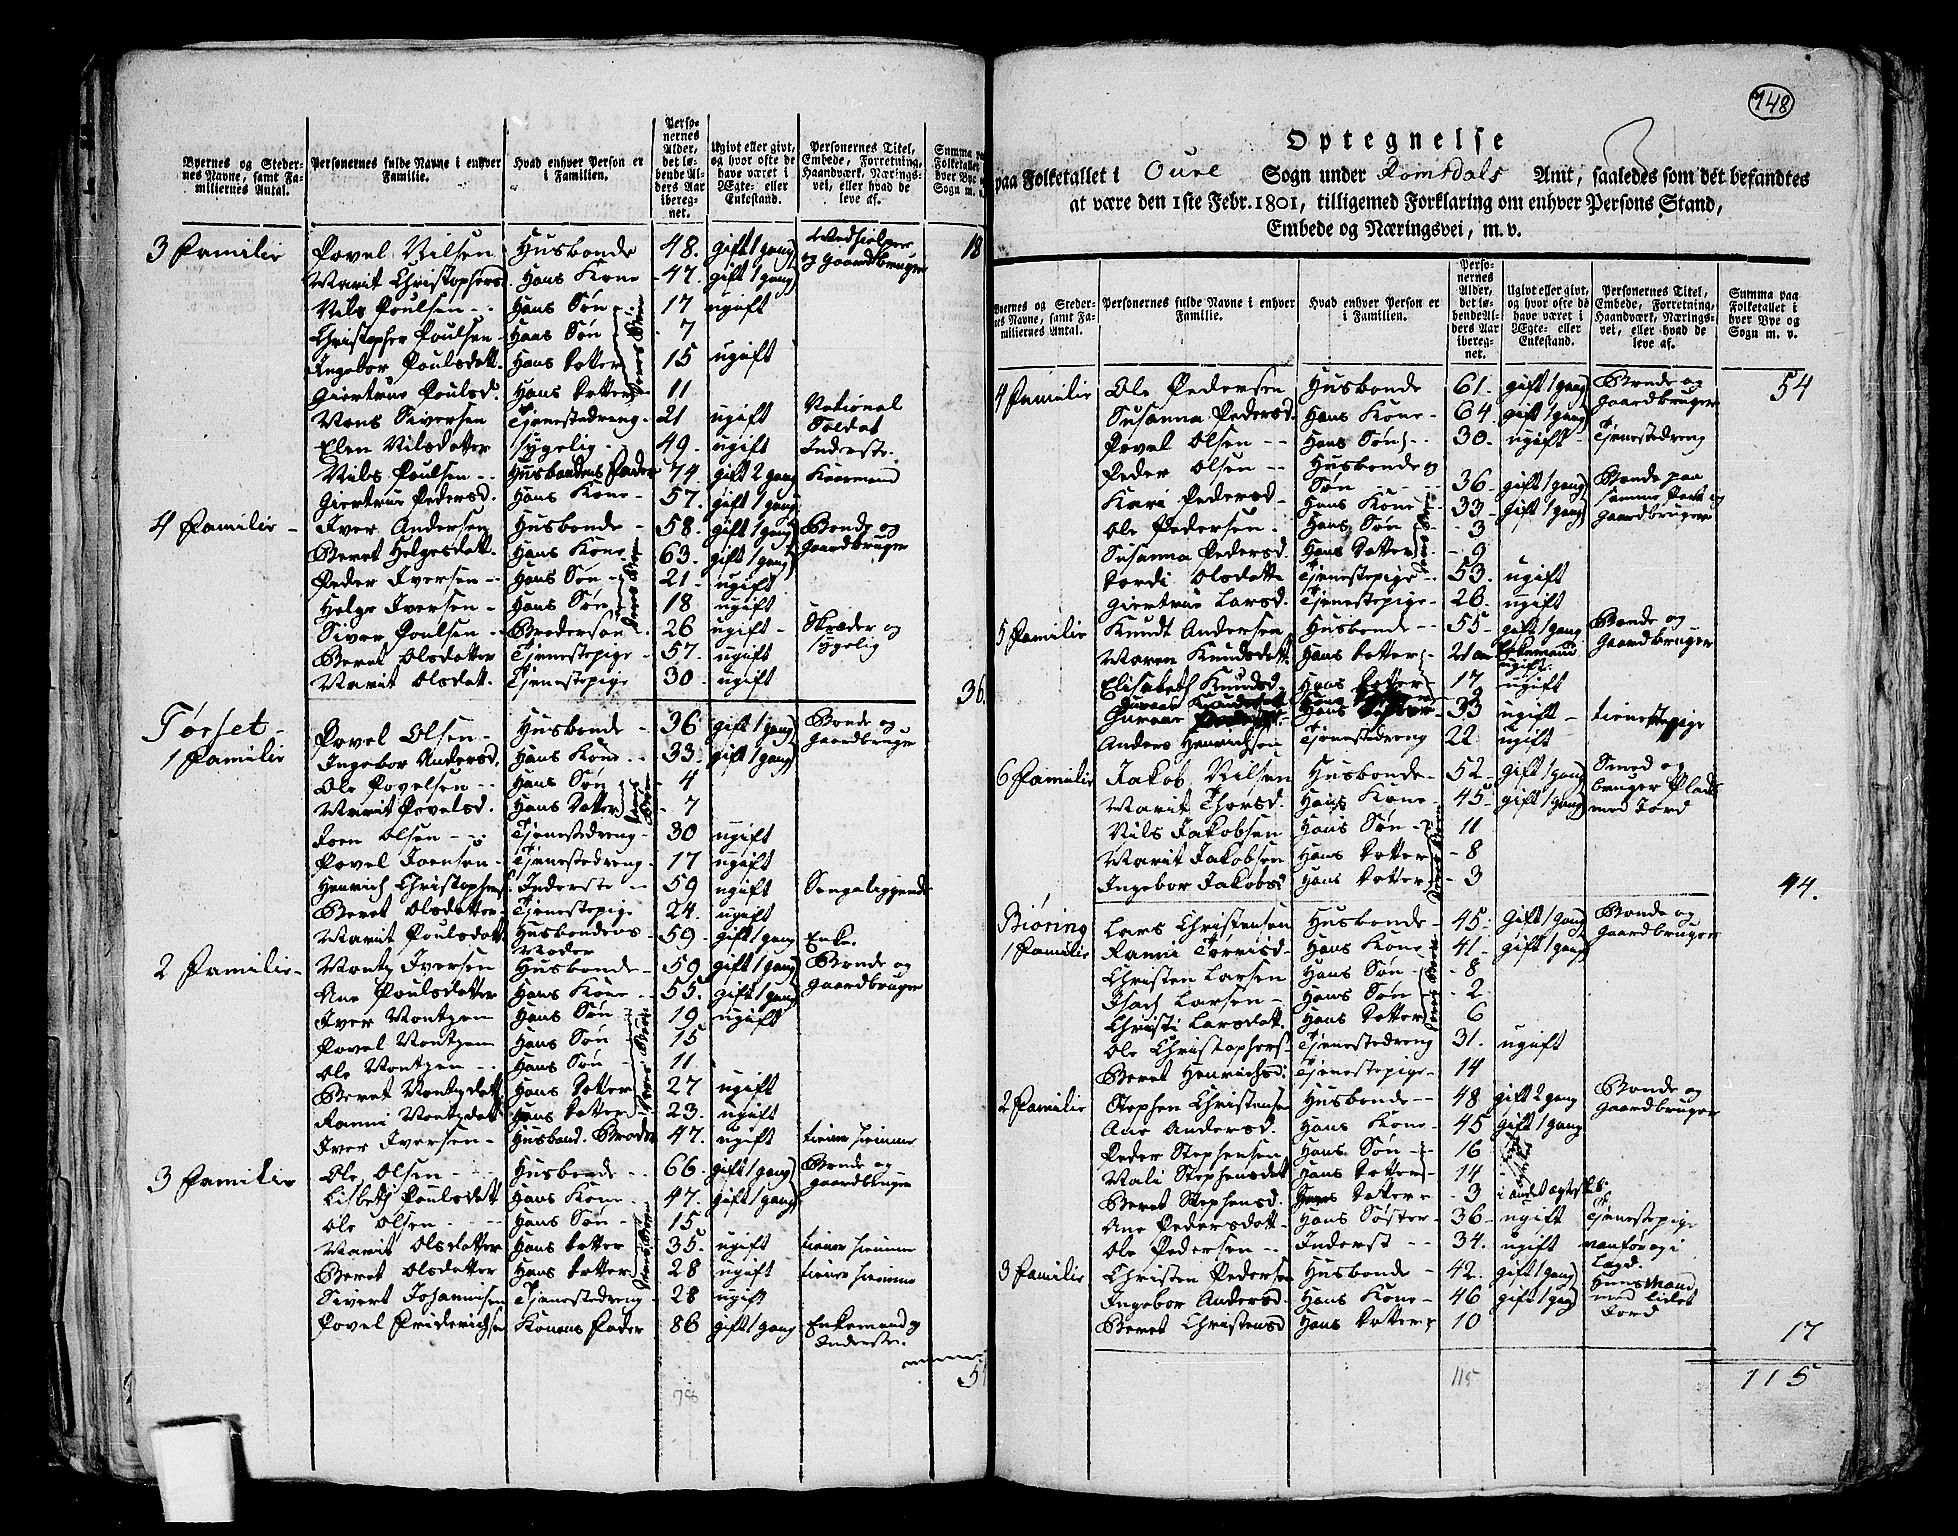 Byernes og Steder-
nes Navne, samt Fa-
miliernes Antal.
Personernes fulde Navne i enhver
Familie.
Hvad enhver Person er
i Familien.
Perso-
nernes
Alder,
det lø-
bende Al-
ders Aar
iberegz-
net.
Ugivt eller givt,
og hvor ofte de
have været i
Ægte- eller
Enkestand.
Personernes Titel,
Embede, Forretning,
Haandværk, Nærings-
vei, eller hvad de
leve af.
Summa paa
Folketallet
hver Bye
Sogn m. v.
3 Familie Povel Nilsen Husbonde 48. gift 1 gang Medhielper og Gaardbruger 18
Marit Christophersd. Hans Kone 47. gift 1 gang
Nils Poulsen Hans Søn 17 ugift
Christopher Poulsen Hans Søn 7
Ingebor Poulsdatt. Hans Dotter 15 ugift
Giertrue Poulsd. Hans Dotter 11
Mons Siversen Tjenestedreng 21 ugift National Soldat
Elen Nilsdatter sygelig 49. ugift Inderste.
Nils Poulsen Husbondens Fader 74. gift 2 gang Kaarmand
Giertrue Pedersd. Hans Kone 57. gift 1 gang
4 Familie Iver Andersen Husbonde 58. gift 1 gang Bonde og Gaardbruger
Beret Helgesdatt. Hans Kone 63. gift 1 gang
Peder Iversen Hans Søn 21. ugift
Helge Iversen Hans Søn 18 ugift
Siver Poulsen Brodersøn 26 ugift Skræder og sygelig
Beret Olsdatter Tjenestepige 57. ugift
Marit Olsdatt. Tjenestepige 30. ugift
36.
Tørset
1 Familie Povel Olsen Husbonde 36 gift 1 gang Bonde og Gaardbruger
Ingebor Andersd. Hans Kone 33. gift 1 gang
Ole Povelsen Hans Søn 4
Marit Povelsd. Hans Dotter 7
Joen Olsen Tjenestedreng 30 ugift
Povel Joensen Tjenestedreng 17 ugift
Henrich Christophers. Inderste 59 ugift Sengeliggende
Beret Olsdatter Tjenestepige 24. ugift
Marit Poulsdatt. Husbondens Moder 59 gift 1 gang Enke.
2 Familie Montz Iversen Husbonde 59. gift 1 gang Bonde og Gaardbruger
Ane Poulsdatter Hans Kone 55. gift 1 gang
Iver Montzen Hans Søn 19 ugift
Povel Montzen Hans Søn 15
Ole Montzen Hans Søn 11.
Beret Montzdatt. Hans Dotter 27 ugift
Ranni Montzdatt. Hans Dotter 23. ugift
Iver Iversen Husbond. Broder 47. ugift tiener hiemme
3 Familie Ole Olsen Husbonde 66. gift 1 gang Bonde og Gaardbruger
Lisbeth Poulsdatt. Hans Kone 47. gift 1 gang
Ole Olsen Hans Søn 15.
Marit Olsdatter Hans Dotter 35. ugift tiener hiemme
Beret Olsdatter Hans Dotter 28 ugift tiener hiemme
Sivert Johannisen Tjenestedreng 28 ugift
Povel Friderichsen Konens Fader 86 gift 1 gang Enkemand og Inderste.
78
148
Optegnelse
paa Folketallet i Oure Sogn under Romsdals Amt, saaledes som det befandtes
at være den 1ste Febr. 1801, tilligemed Forklaring om enhver Persons Stand,
Embede og Næringsvei, m. v.
Byernes og Steder-
nes Navne, samt Fa-
miliernes Antal.
Personernes fulde Navne i enhver
Familie.
Hvad enhver Person er
i Familien.
Perso-
nernes
Alder,
det lø-
bende Al-
ders Aar
iberegz-
net.
Ugivt eller givt,
og hvor ofte de
have været i
Ægte- eller
Enkestand.
Personernes Titel,
Embede, Forretning,
Haandværk, Nærings-
vei, eller hvad de
leve af.
Summa paa
Folketallet i
hver Bye og
Sogn m. v.
4 Familie Ole Pedersen Husbonde 61. gift 1 gang Bonde og Gaardbruger 54
Susanna Pedersd. Hans Kone 64. gift 1 gang
Povel Olsen Hans Søn 30. ugift Tjenestedreng
Peder Olsen Husbonde og Søn 36. gift 1 gang Bonde paa samme Part og Gaardbruger
Kari Pedersd. Hans Kone 33. gift 1 gang
Ole Pedersen Hans Søn 3
Susanna Pedersd. Hans Dotter 9
Dordi Olsdatte Tjenestepige 53. ugift
Giertrue Larsd. Tjenestepige 26. ugift
5 Familie Knudt Andersen Husbonde 55 gift 1 gang Enkemand Bonde og Gaardbruger
Maren Knudsdatt. Hans Dotter 21 ugift
Elisabeth Knudsd. Hans Dotter 17 ugift
Guroar Hans 33 ugift tienestepige
Anders Henrichsen Tjenestedreng 22 ugift
6 Familie Jakob Nilsen Husbonde 52. gift 1 gang Smed og bruger Plads med Jord
Marit Thorsd. Hans Kone 45 gift 1 gang
Nils Jakobsen Hans Søn 11
Marit Jakobsen Hans Dotter 8
Ingebor Jakobsd Hans Dotter 3
44.
Biøring
1 Familie Lars Christensen Husbonde 45. gift 1 gang Bonde og Gaardbruger
Ranni Torrisd. Hans Kone 41. gift 1 gang
Christen Larsen Hans Søn 8
Isach Larsen Hans Søn 2
Christi Larsdatt. Hans Dotter 6
Ole Christophers. Tjenestedreng 31. ugift
Beret Henrichsd. Tjenestepige 14
2 Familie Stephen Christensen Husbonde 48 gift 2 gang Bonde og Gaardbruger
Ane Andersd. Hans Kone 45 gift 1 gang
Peder Stephensen Hans Søn 16
Mali Stephensdat Hans Dotter 14
Beret Stephensd. Hans Dotter 3 i andet ægteskab
Ane Pedersdatt. Hans Søster 36 ugift Tjenestepige
Ole Pedersen Inderst 34. ugift vanfør og i Lægd.
3 Familie Christen Pedersen Husbonde 42. gift 1 gang Huusmand med lidet Jord
Ingebor Andersd. Hans Kone 46 gift 1 gang
Beret Christensd Hans Dotter 10
17
115
115